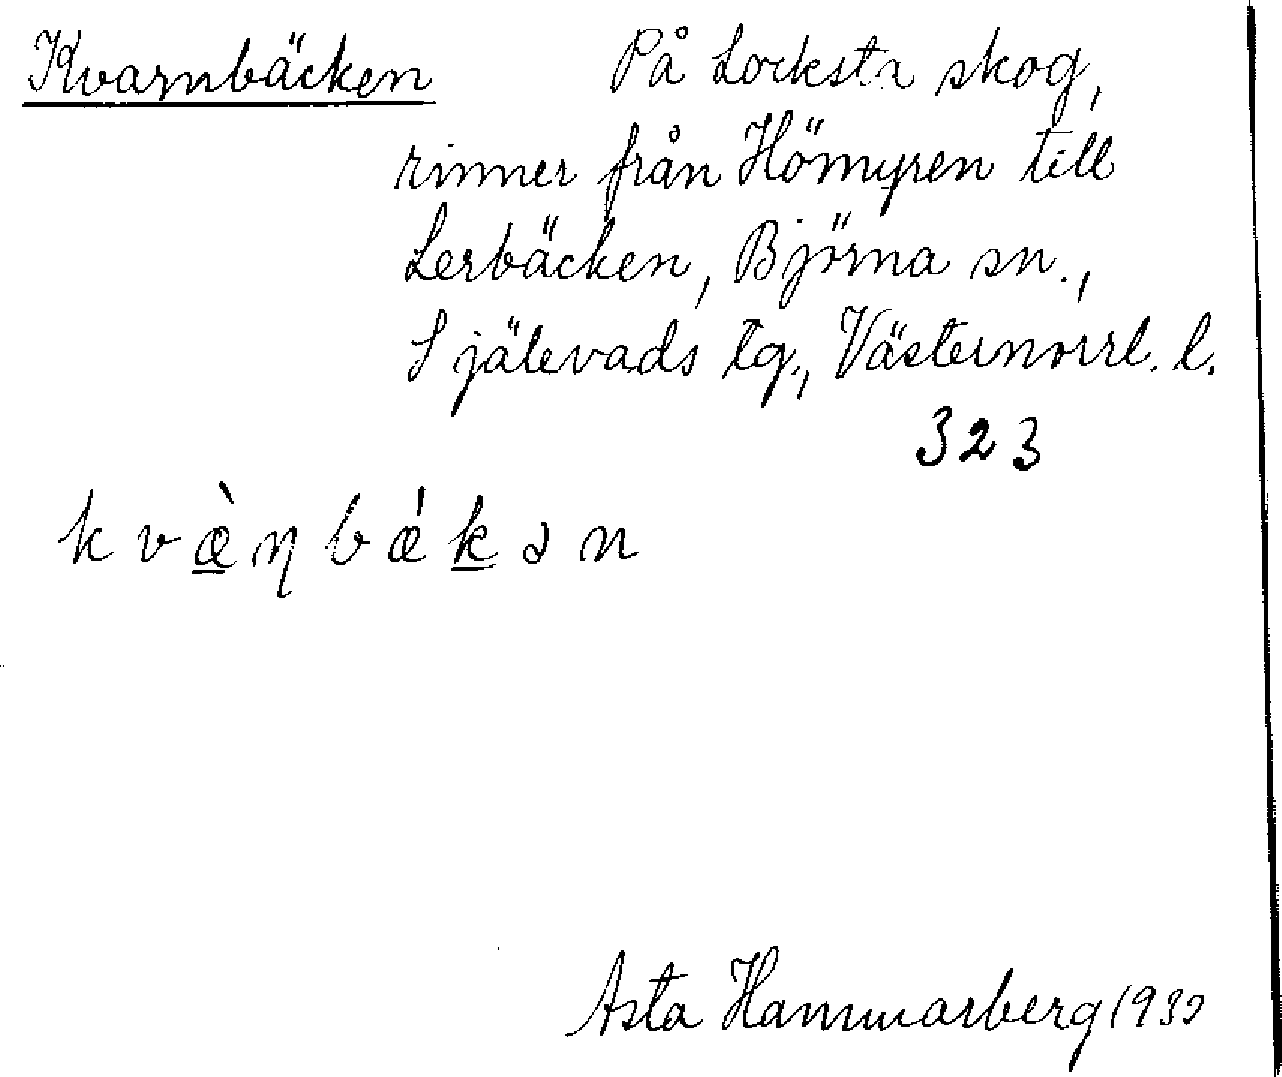 Kvarnbäcken På Locksta skog,
rinner från Hömyren till
Lerbäcken, Björna sn.,
Själevads tg., Västernorrl. l.
323
kvæ̠̀ŋbǽk̠ən
Asta Hammarberg